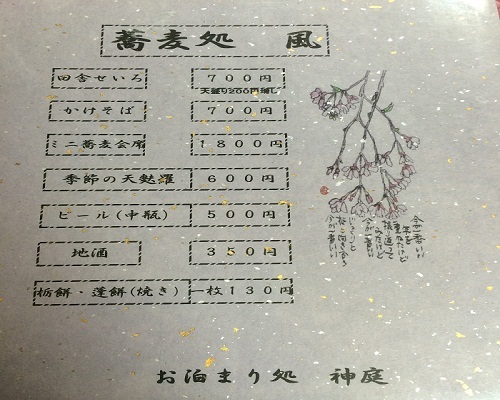 蕎麦処 風
田舎せいろ 700円
天盛り200円増し
かけそば 700円
ミニ蕎麦会席 1800円
季節の天麩羅 600円
ビール(中瓶) 500円
地酒 350円
栃餅・蓬餅(焼き) 一枚130円
今が一番いい
お泊まり処 神庭